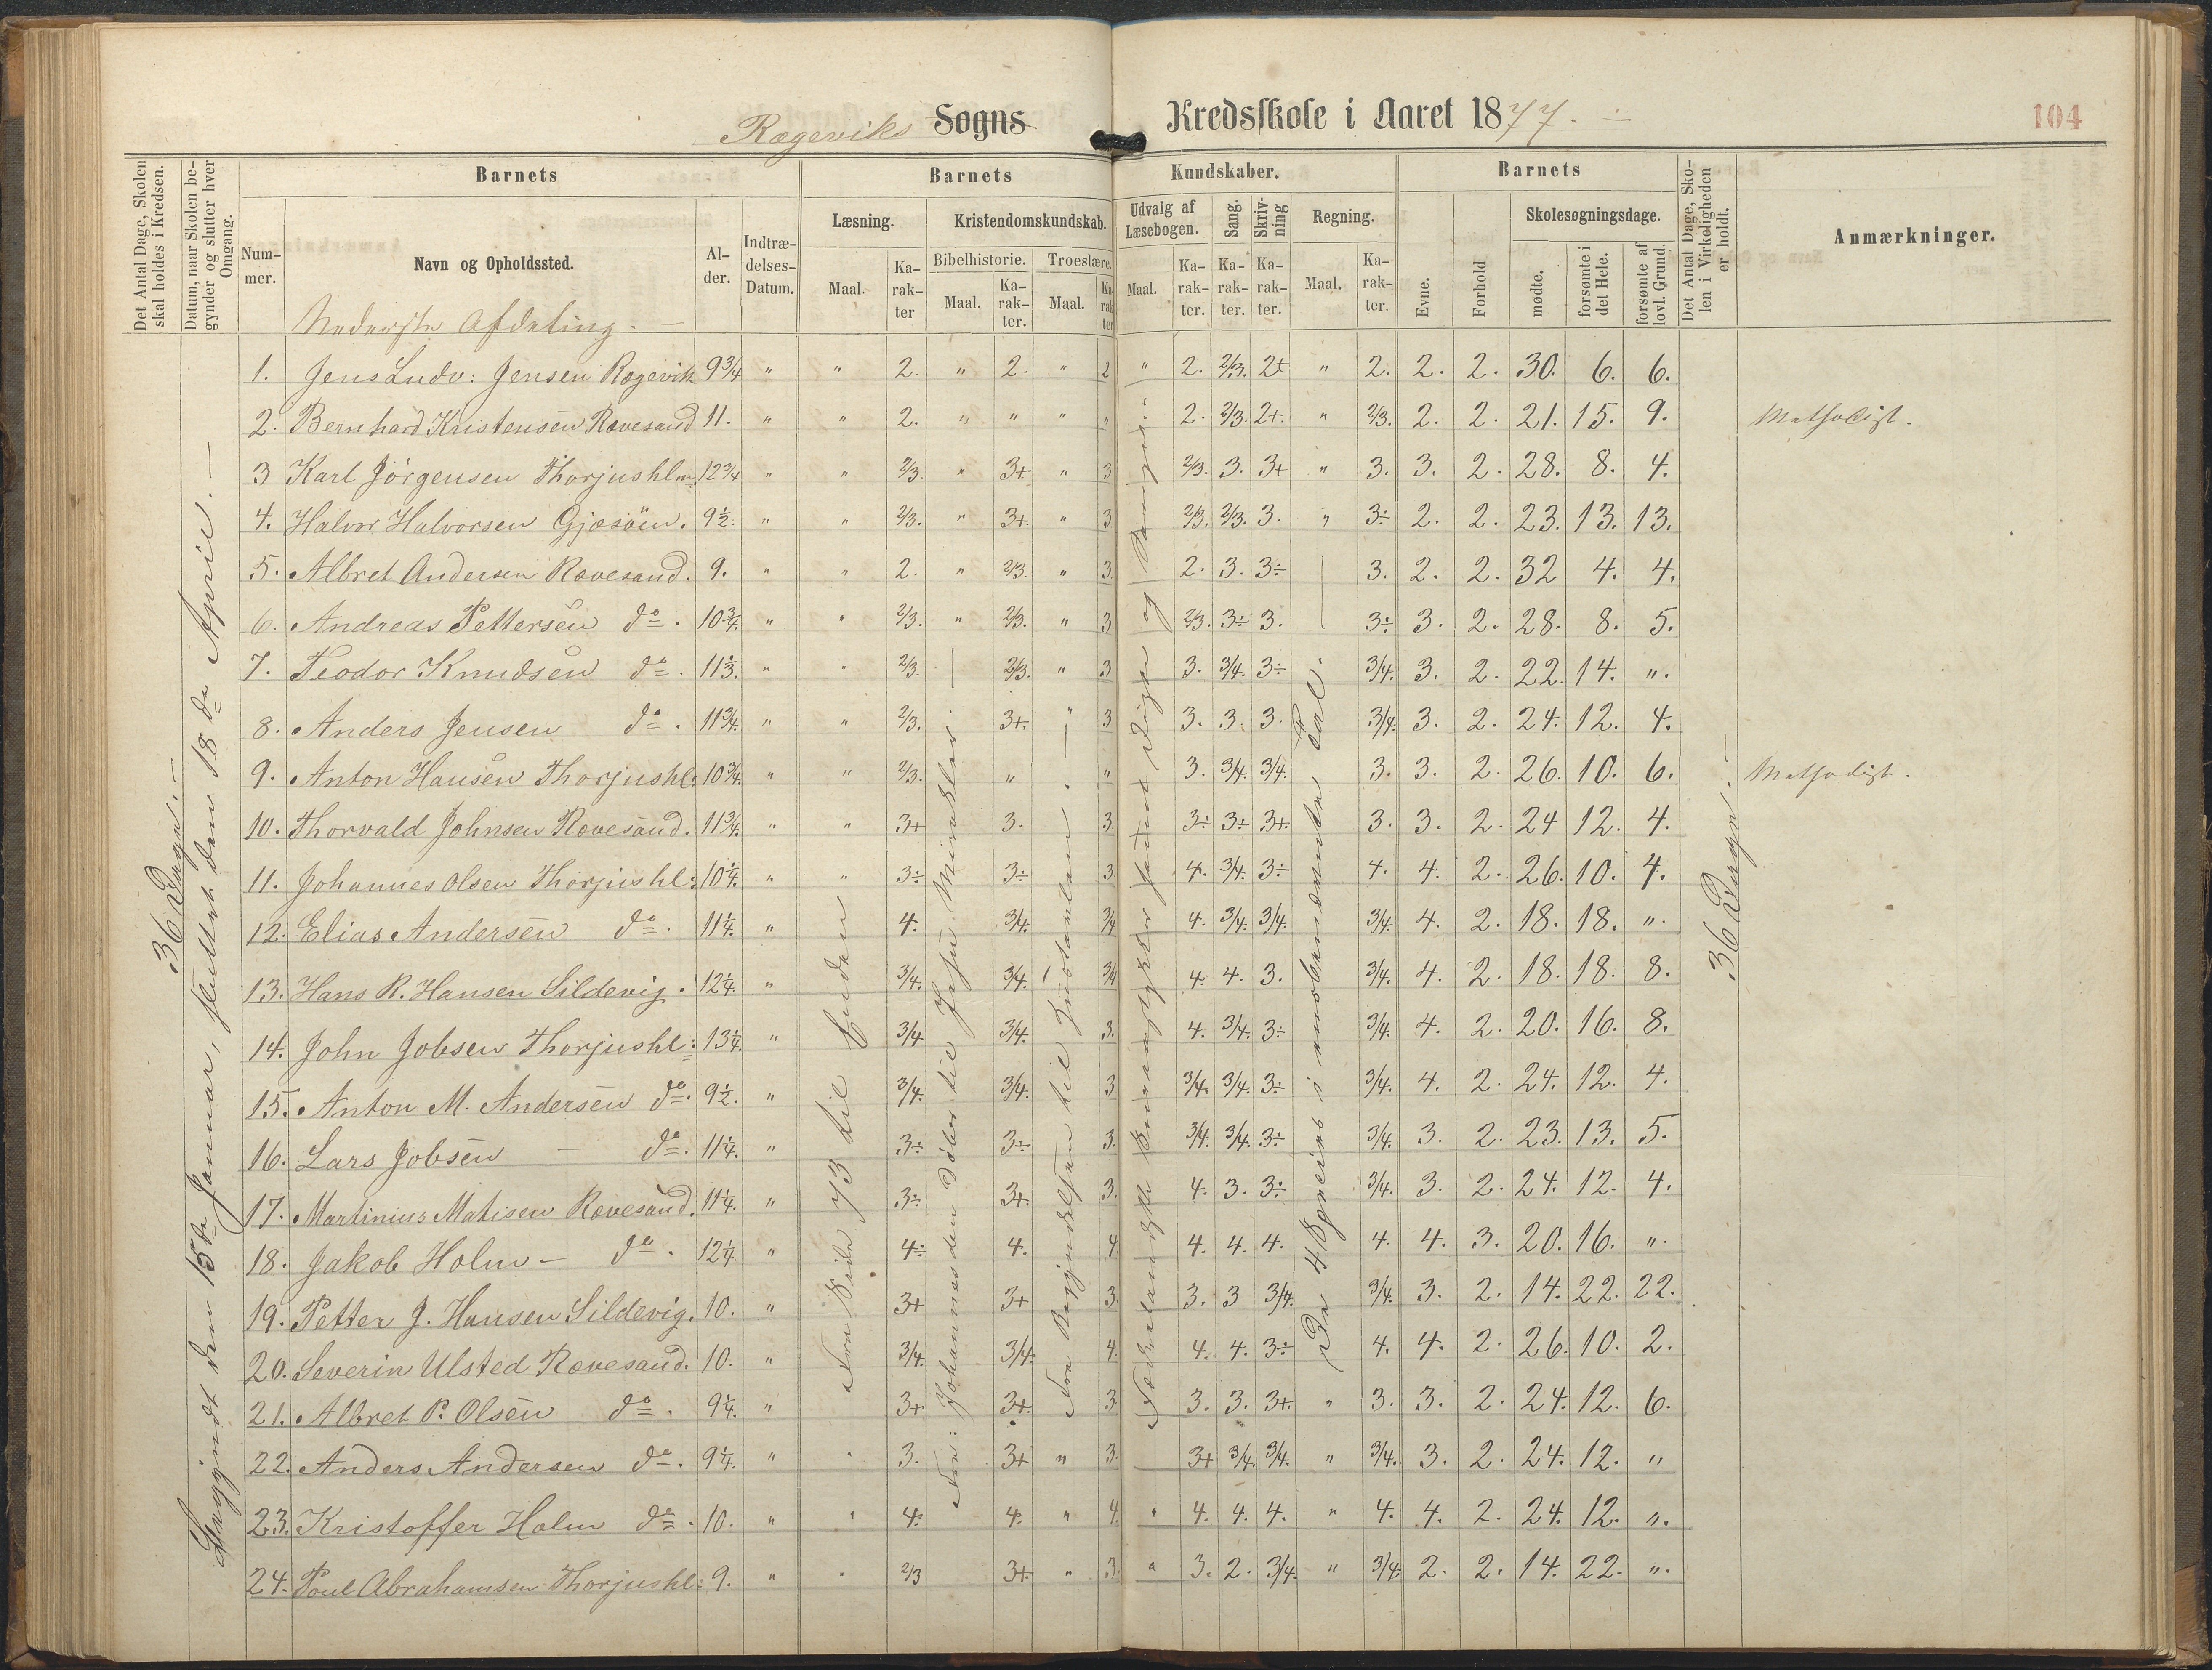 Rægeviks Sogns Kredsskole i Aaret 1877. 104
Det Antal Dage, Skolen skal holdes i Kredsen.
Datum, naar Skolen begynder og slutter hver Omgang.
Barnets
Nummer.
Navn og Opholdssted.
Alder.
Indtrædelses-Datum.
Barnets Kundskaber.
Læsning. Maal. Karakter
Kristendomskundskab.
Bibelhistorie. Maal. Karakter.
Troeslære. Maal. Karakter
Udvalg af Læsebogen. Maal. Karakter.
Sang. Karakter.
Skrivning Karakter.
Regning. Maal. Karakter.
Barnets
Evne.
Forhold
Skolesøgningsdage.
mødte.
forsømte i det Hele.
forsømte af lovl. Grund.
Det Antal Dage, Skolen i Virkeligheden er holdt.
Anmærkninger.
Nederste Afdeling.
36 Dage.
Begyndt den 15de Januar, sluttet den 18de April.
1. Jens Ludv: Jensen Rægevik 9 3/4 " " 2. " 2. " 2 " 2. 2/3. 2+ " 2. 2. 2. 30. 6. 6.
2. Bernhard Kristensen Rævesand 11. " " 2. " " " " 2. 2/3. 2+. " 2/3. 2. 2. 21. 15. 9. Methodist.
3 Karl Jörgensen Thorjushlm. 12 3/4 " " 2/3. " 3+ " 3 2/3. 3. 3+ " 3. 3. 2. 28. 8. 4.
4. Halvor Halvorsen Gjæsöen. 9 1/2. " " 2/3. " 3+. " 3. 2/3. 2/3. 3. " 3÷ 2. 2. 23. 13. 13.
5. Albret Andersen Rævesand. 9. " " 2. " 2/3. " 3. 2. 3. 3÷ 3. 2. 2. 32 4. 4.
6. Andreas Pettersen do. 10 3/4. " " 2/3. " 2/3. " 3 2/3. 3÷ 3. 3÷ 3. 2. 28. 8. 5.
7. Teodor Knudsen do. 11 1/3. " " 2/3. 2/3. " 3 3. 3/4. 3÷ 3/4. 3. 2. 22. 14. ".
8. Anders Jensen do. 11 3/4. " " 2/3. 3+. " 3 3. 3. 3. 3/4. 3. 2. 24. 12. 4.
9. Anton Hansen Thorjushl: 10 3/4. " " 2/3. " " 3. 3/4. 3/4. 3. 3. 2. 26. 10. 6. Methodist.
10. Thorvald Johnsen Rævesand. 11 3/4. " " 3+ 3. 3. 3÷ 3÷ 3+. 3. 3. 2. 24 12. 4.
11. Johannes Olsen Thorjushl: 10 1/4. " " 3÷ 3÷ 3 4. 3/4. 3÷ 4. 4. 2. 26. 10. 4.
12. Elias Andersen do. 11 1/4. " 4. 3/4. 3/4 4. 3/4. 3/4. 3/4. 4. 2. 18. 18. ".
13. Hans R. Hansen Sildevig. 12 1/4. " 3/4. 3/4. 3/4 4. 4. 3. 3/4. 4. 2. 18. 18. 8.
14. John Jobsen Thorjushl: 13 1/4. " 3/4 3/4. 3. 4. 3/4. 3÷ 3/4. 4. 2. 20. 16. 8.
15. Anton M. Andersen do. 9 1/2. " 3/4. 3/4. 3 3/4. 3/4. 3÷ 3/4. 4. 2. 24. 12. 4.
16. Lars Jobsen do. 11 1/4. " 3÷ 3÷ 3. 3/4. 3/4. 3÷ 3/4. 3. 2. 23. 13. 5.
17. Martinius Matisen Rævesand. 11 1/4. " 3÷ 3+. 3. 4. 3. 3÷ 3/4. 3. 2. 24. 12. 4.
18. Jakob Holm – do. 12 1/4. " 4÷ 4. 4 4. 4. 4. 4. 4. 3. 20. 16. ".
19. Petter J. Hansen Sildevig. 10. " 3+ 3+ 3. 3. 3 3/4. 3/4. 3. 2. 14. 22. 22.
20. Severin Ulsted Rævesand. 10. " 3/4. 3/4. 4. 4. 4. 3÷ 4. 4. 2. 26. 10. 2.
21. Albret P. Olsen do. 9 1/4. " 3+ 3+. 3 3. 3. 3+. " 3. 3. 2. 24. 12. 6.
22. Anders Andersen do. 9 1/4. " " 3. 3+ " 3. 3+ 3/4. 3/4. " 3/4. 3. 2. 24. 12. "
23. Kristoffer Holm do. 10. " " 4. 4. " 4. " 4. 4. 4. " 4. 4. 2. 24. 12. ".
24. Poul Abrahamsen Thorjushl: 9. " " 2/3 3+. " 3. " 3. 2. 3/4. " 3/4. 2. 2. 14. 22. ".
Fra Side 73 til Enden
Fra: Johannes den Døber til Jesu Mirakler.
Fra Begyndelsen til
De 4 Spesies i ubenævnte Tal.
36 Dage.